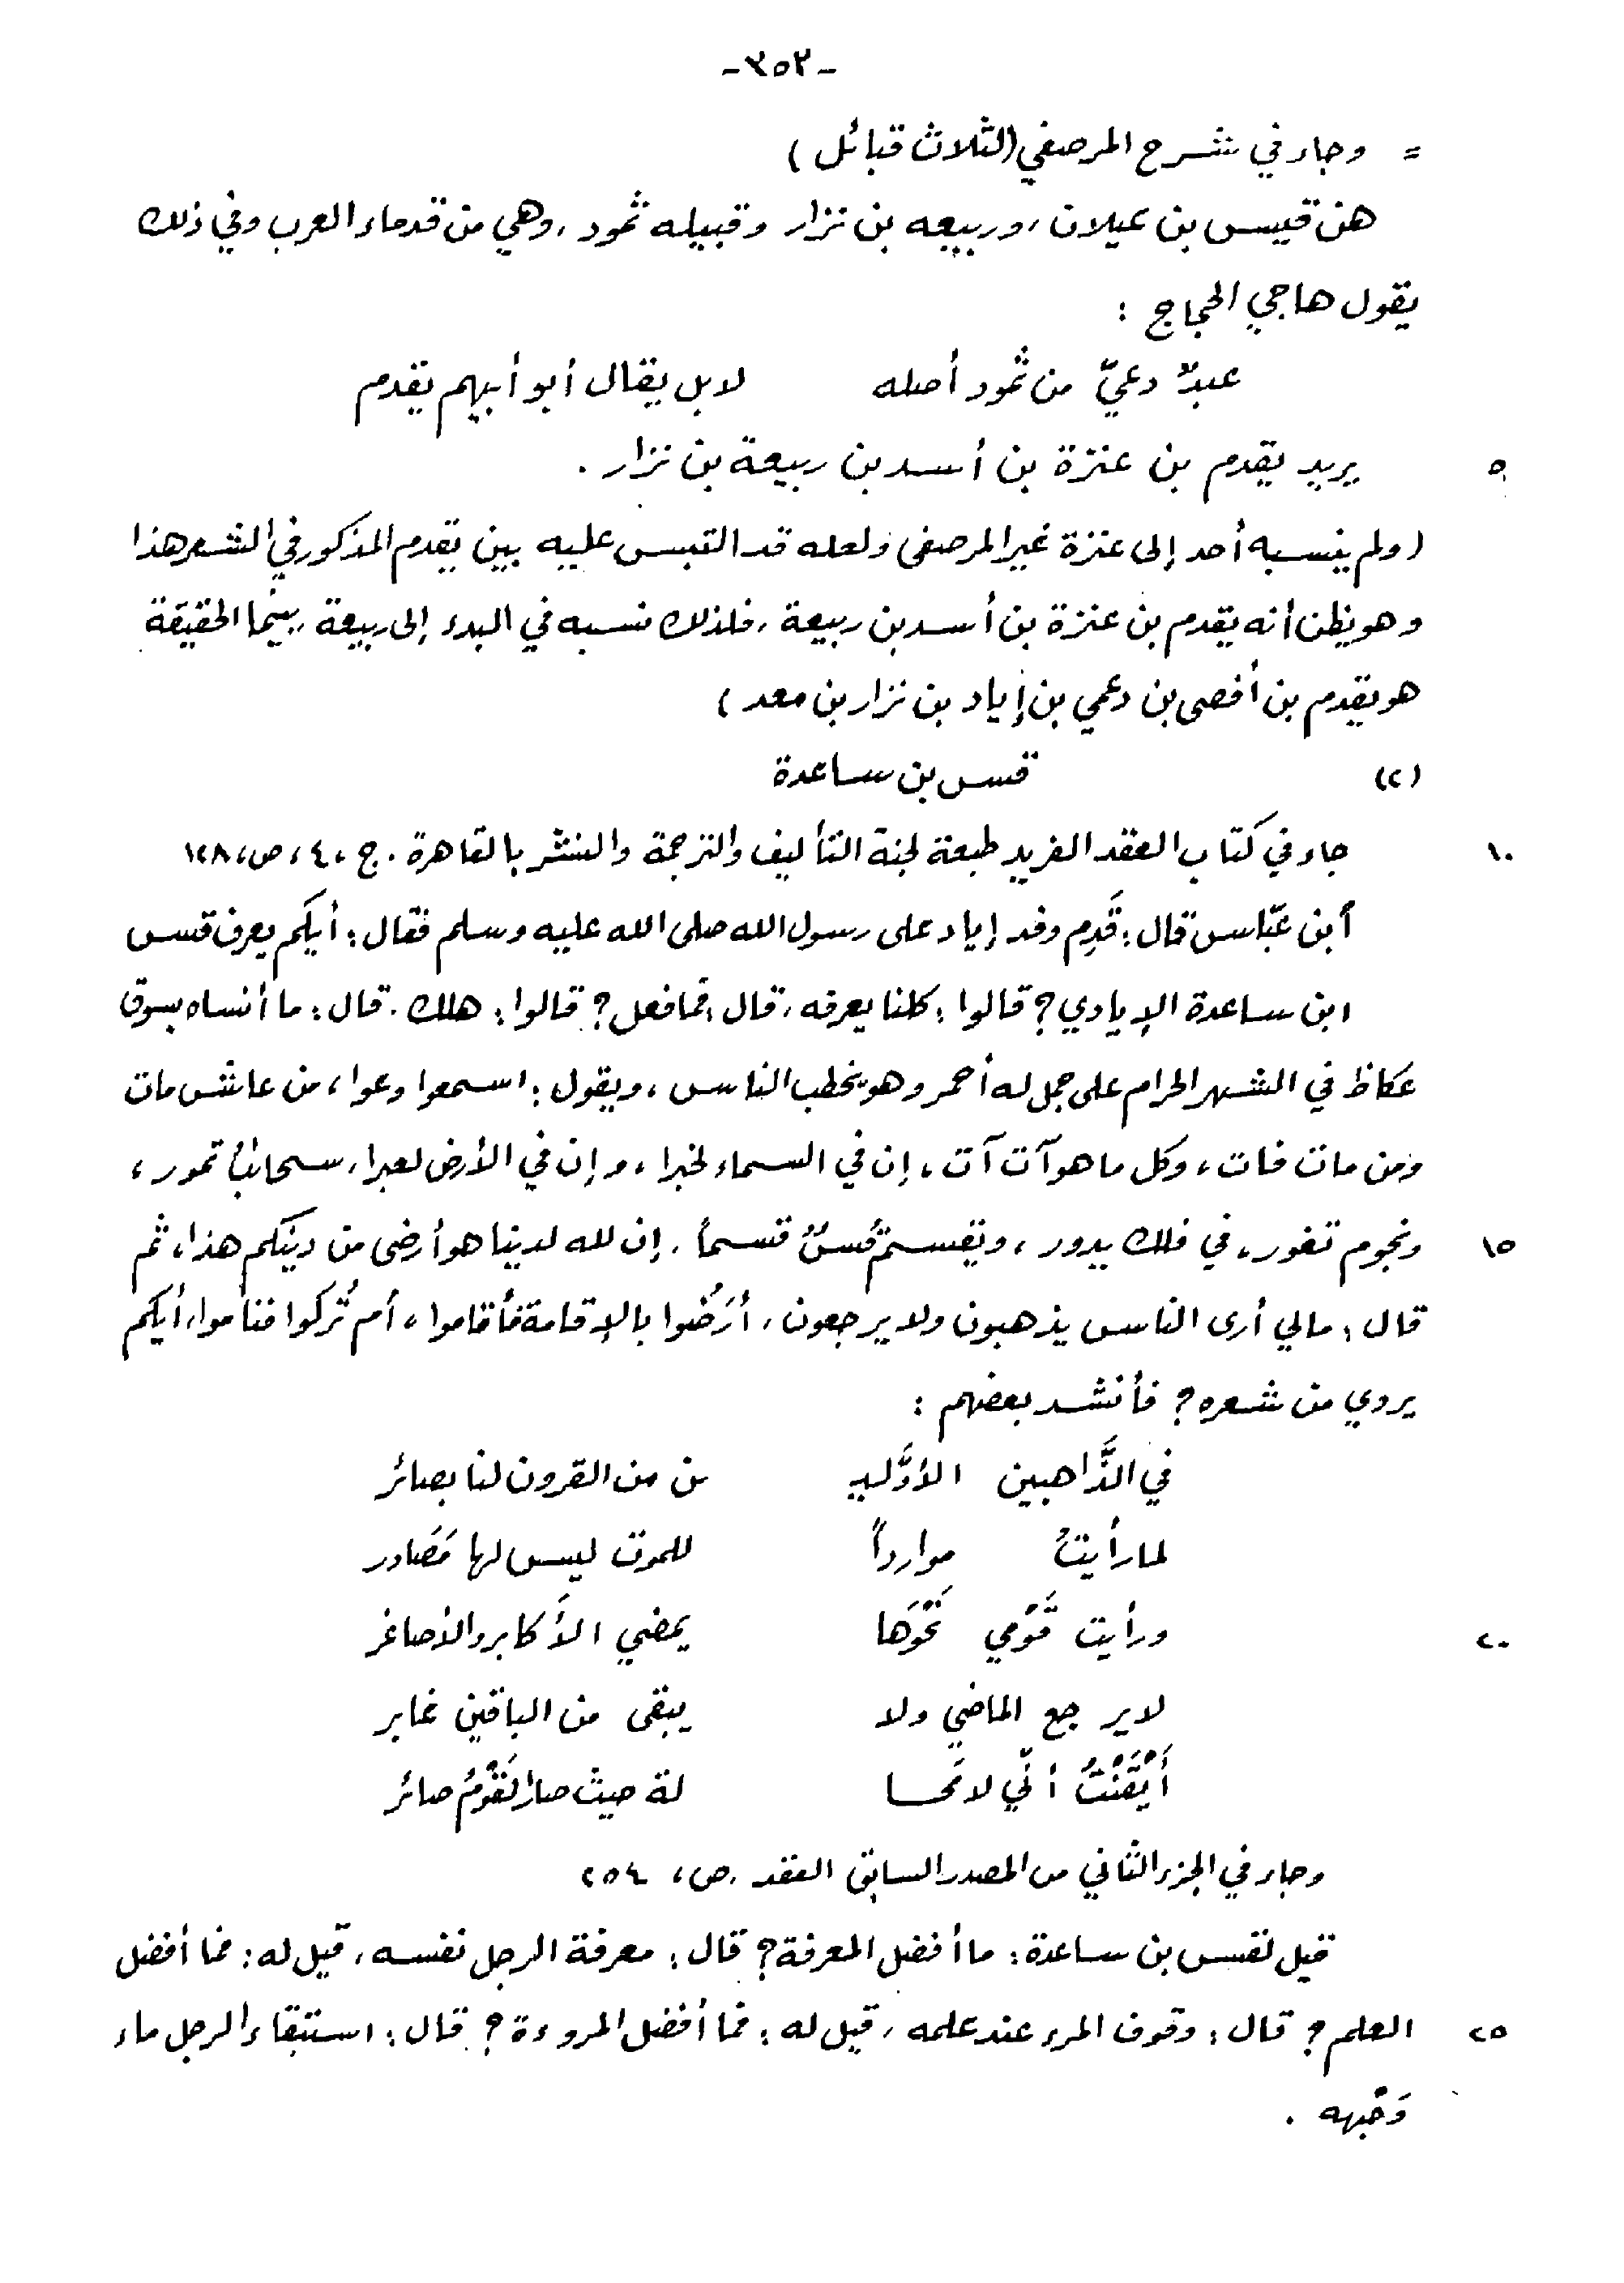 -٣٥٢-
= وجاء في شرح المرصفي (الثلاث قبائل)
هن قيس بن عيلان، وربيعه بن نزار وقبيله ثمود، وهي من قدماء العرب وفي ذلك
يقول هاجي الحجاج :
عبدٌ دعيّ من ثمود أصله لا بل يقال أبو أبيهم يقدم
٥ يريد يقدم بن عنزة بن أسد بن ربيعة بن نزار .
(ولم ينسبه أحد إلى عنزة غير المرصفي ولعله قد التبس عليه بين يقدم المذكور في الشعر هذا
وهو يظن أنه يقدم بن عنزة بن أسد بن ربيعة، فلذلك نسبه في البدء إلى ربيعة، بينما الحقيقة
هو يقدم بن أفصى بن دعمي بن إياد بن نزار بن معد )
(٢) قس بن ساعدة
١٠ جاء في كتاب العقد الفريد طبعة لجنة التأليف والترجمة والنشر بالقاهرة . ج ، ٤ ، ص ، ١٢٨
أبن عبّاس قال : قَدِم وفد إياد على رسول الله صلى الله عليه وسلم فقال : أيكم يعرف قس
ابن ساعدة الإيادي ؟ قالوا : كلنا يعرفه ، قال : فما فعل ؟ قالوا : هلك . قال : ما أنساه بسوق
عكاظ في الشهر الحرام على جمل له أحمر وهو يخطب الناس ، ويقول : اسمعوا وعوا ، من عاش مات
ومن مات فات ، وكل ما هو آت آت ، إن في السماء لخبرا ، وإن في الأرض لعبرا ، سحائبُ تمور ،
١٥ ونجوم تغور ، في فلك يدور ، ويقسم قُسٌ قسماً ، إن لله لدينا هو أرضى من دينكم هذا ، ثم
قال : مالي أرى الناس يذهبون ولا يرجعون ، أرَضُوا بالإقامة فأقاموا ، أم تُركوا فناموا ، أيكم
يروي من شعره ؟ فأنشد بعضهم :
في الذَّاهبين الأوَّليـ ـن من القرون لنا بصائر
لما رأيتُ موارداً للموت ليس لها مَصَادر
٢٠ ورأيت قَوْمي نَحْوَها يمضي الأَكابر والأصاغر
لا يرجع الماضي ولا يبقى من الباقين غابر
أَيْقَنْتُ أنّي لا مَحا لة حيث صار القَوْمُ صائر
وجاء في الجزء الثاني من المصدر السابق العقد . ص ، ٢٥٤
قيل لقس بن ساعدة : ما أفضل المعرفة ؟ قال : معرفة الرجل نفسه ، قيل له : فما أفضل
٢٥ العلم ؟ قال : وقوف المرء عند علمه ، قيل له : فما أفضل المروءة ؟ قال : استبقاء الرجل ماء
وَجْهه .